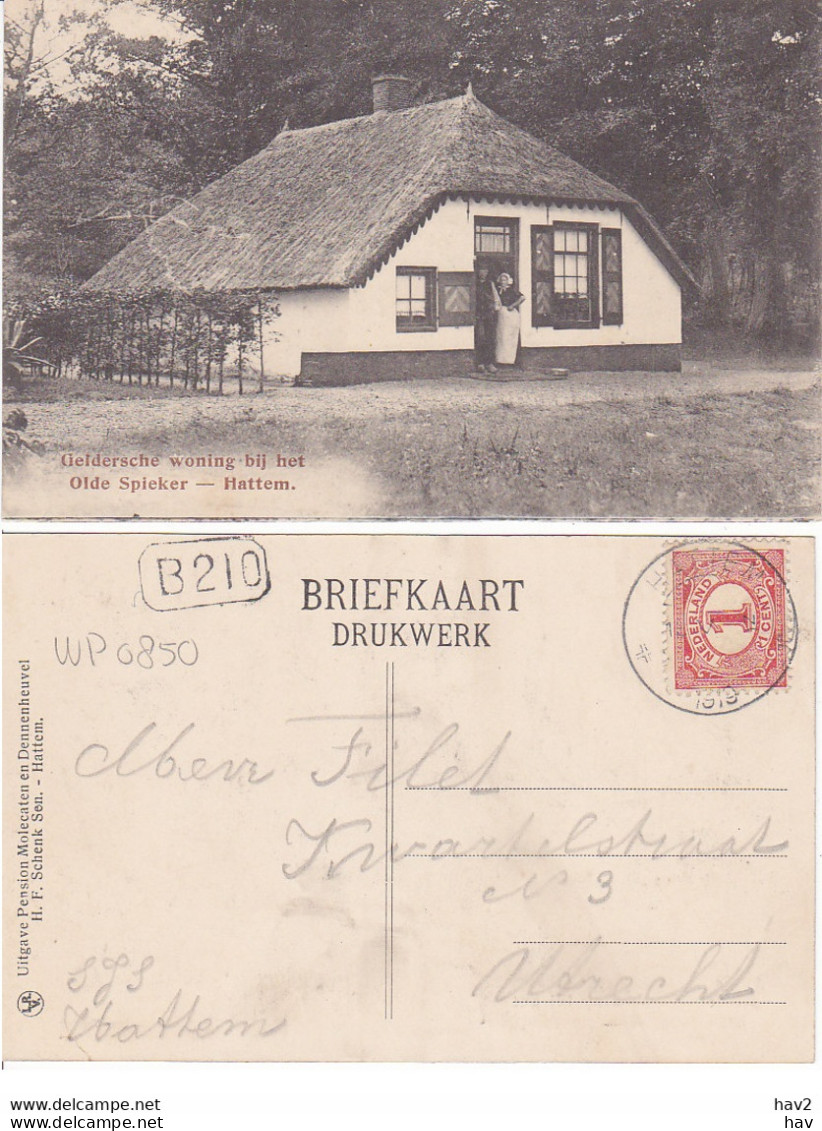 Geldersche woning bij het
Olde Spieker — Hattem.
B210
BRIEFKAART
DRUKWERK
WP 0850
NEDERLAND
1
1 CENT
1919
Uitgave Pension Molecaten en Dennenheuvel
H. F. Schenk Sen. - Hattem.
Mevr Filet
Kwartelstraat
No 3
Utrecht
Hattem
www.delcampe.net
www.delcampe.net
hav2
hav